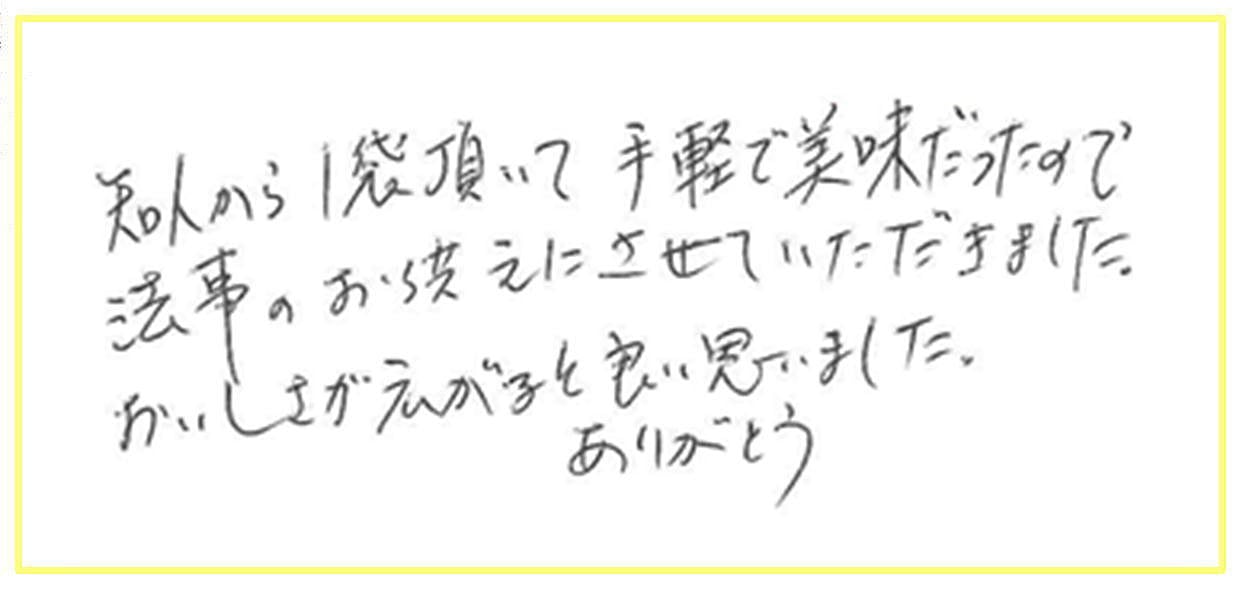 知人から1袋頂いて手軽で美味だったので
法事のお供えにさせていただきました。
おいしさが広がると良い思いました。
ありがとう